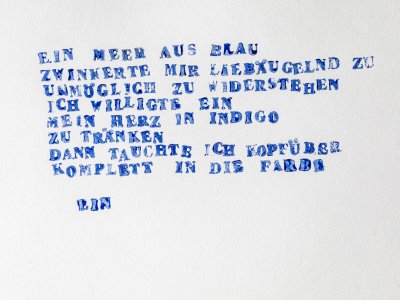 EIN MEER AUS BLAU
ZWINKERTE MIR LIEBÄUGELND ZU
UNMÖGLICH ZU WIDERSTEHEN
ICH WILLIGTE EIN
MEIN HERZ IN INDIGO
ZU TRÄNKEN
DANN TAUCHTE ICH KOPFÜBER
KOMPLETT IN DIE FARBE
EIN